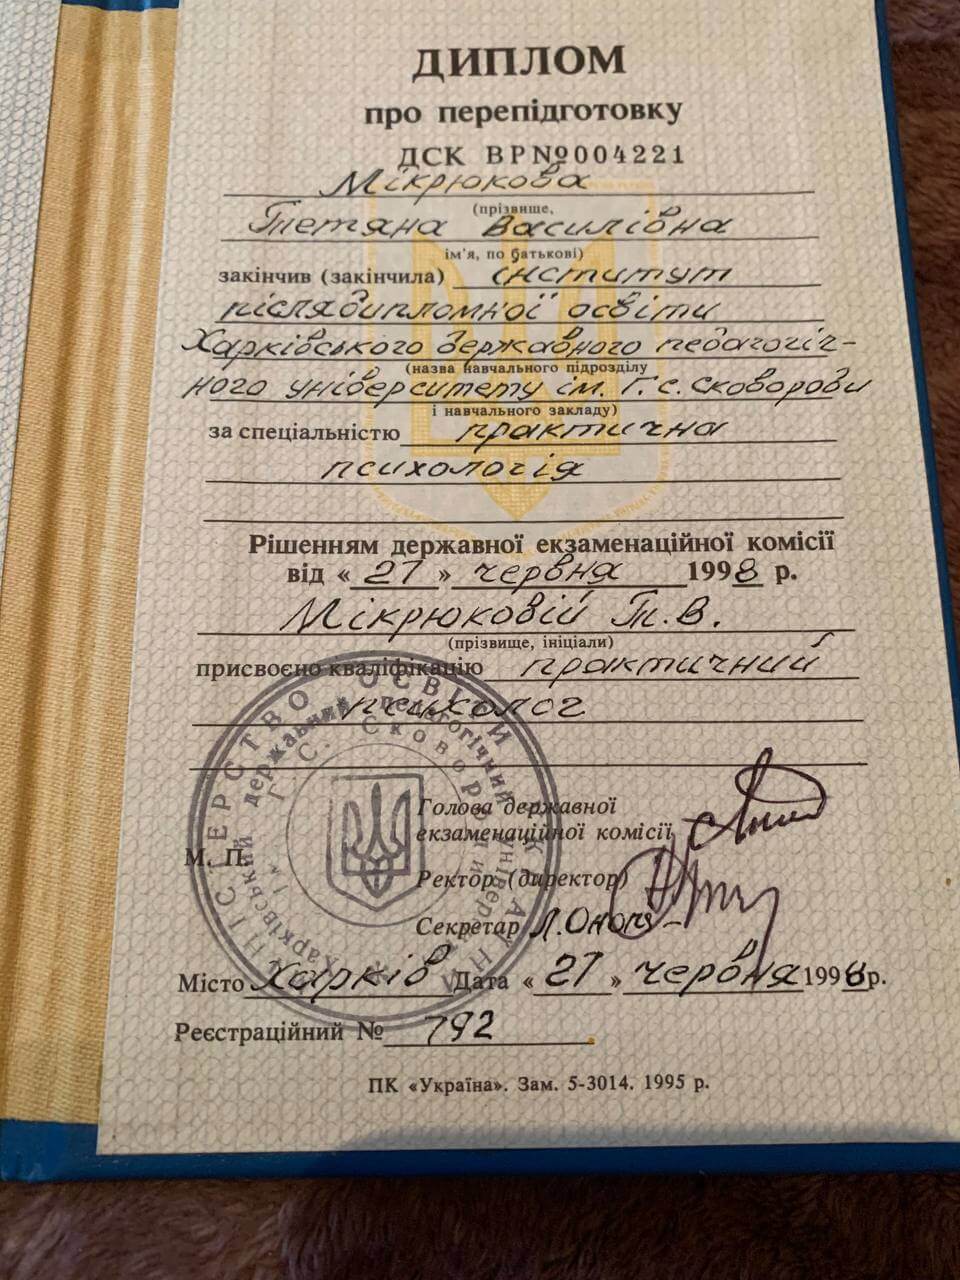 ДИПЛОМ
про перепідготовку
ДСК ВР№004221
Мікрюкова
(прізвище,
Тетяна Василівна
ім'я, по батькові)
закінчив (закінчила) інститут
післядипломної освіти
Харківського державного педагогіч-
(назва навчального підрозділу
ного університету ім. Г.С. Сковороди
і навчального закладу)
за спеціальністю практична
психологія
Рішенням державної екзаменаційної комісії
від « 27 » червня 1998 р.
Мікрюковій Т.В.
(прізвище, ініціали)
присвоєно кваліфікацію практичний
психолог
МІНІСТЕРСТВО ОСВІТИ УКРАЇНИ
Харківський державний педагогічний університет
ім. Г. С. Сковороди
Голова державної
екзаменаційної комісії
М. П.
Ректор (директор)
Секретар
Місто Харків Дата « 27 » червня 1998 р.
Реєстраційний № 792
ПК «Україна». Зам. 5-3014. 1995 р.